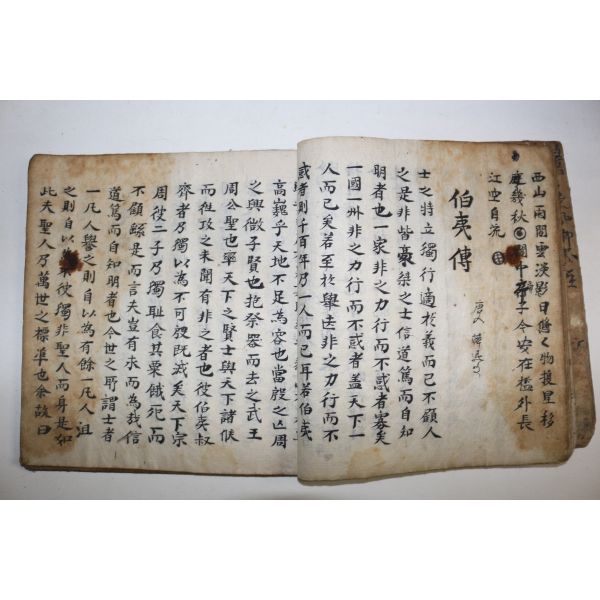 西山雨閣雲淡影日悠〻物換星移
度幾秋閣中帝子今安在檻外長
江空自流
伯夷傳
唐人韓退之
士之特立獨行適於義而已不顧人
之是非皆豪桀之士信道篤而自知
明者也一家非之力行而不惑者寡矣
一國一州非之力行而不惑者盖天下一
人而已矣若至於舉世非之力行而不
惑者則千百年乃一人而已耳若伯夷
高巍乎天地不足為容也當殷之亡周
之興微子賢也抱祭器而去之武王
周公聖也率天下之賢士與天下諸侯
而徃攻之未聞有非之者也彼伯夷叔
齊者乃獨以為不可殷既滅矣天下宗
周彼二子乃獨耻食其粟餓死而
不顧繇是而言夫豈有求而為哉信
道篤而自知明者也今世之所謂士者
一凡人譽之則自以為有餘一凡人沮
之則自以為不足彼獨非聖人而自是如
此夫聖人乃萬世之標準也余故曰